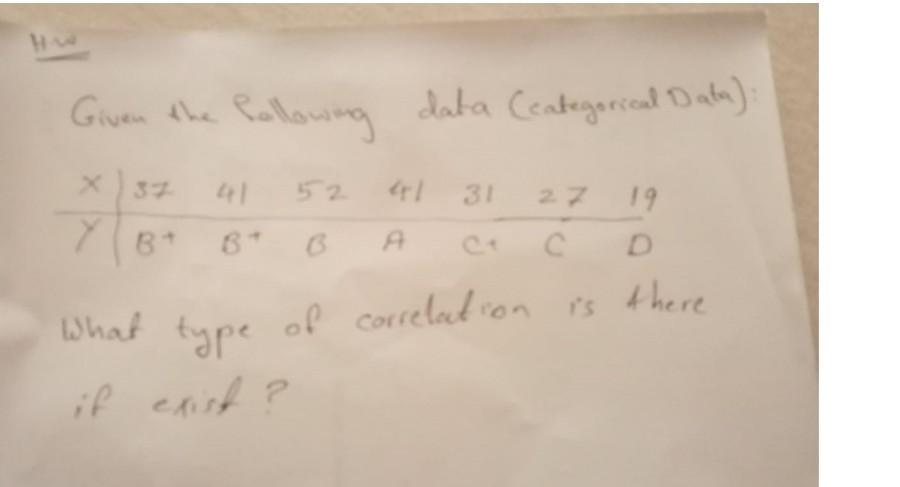 H.W
Given the following data (categorical Data):
X 37 41 52 41 31 27 19
Y B+ B+ B A C+ C D
What type of correlation is there
if exist?